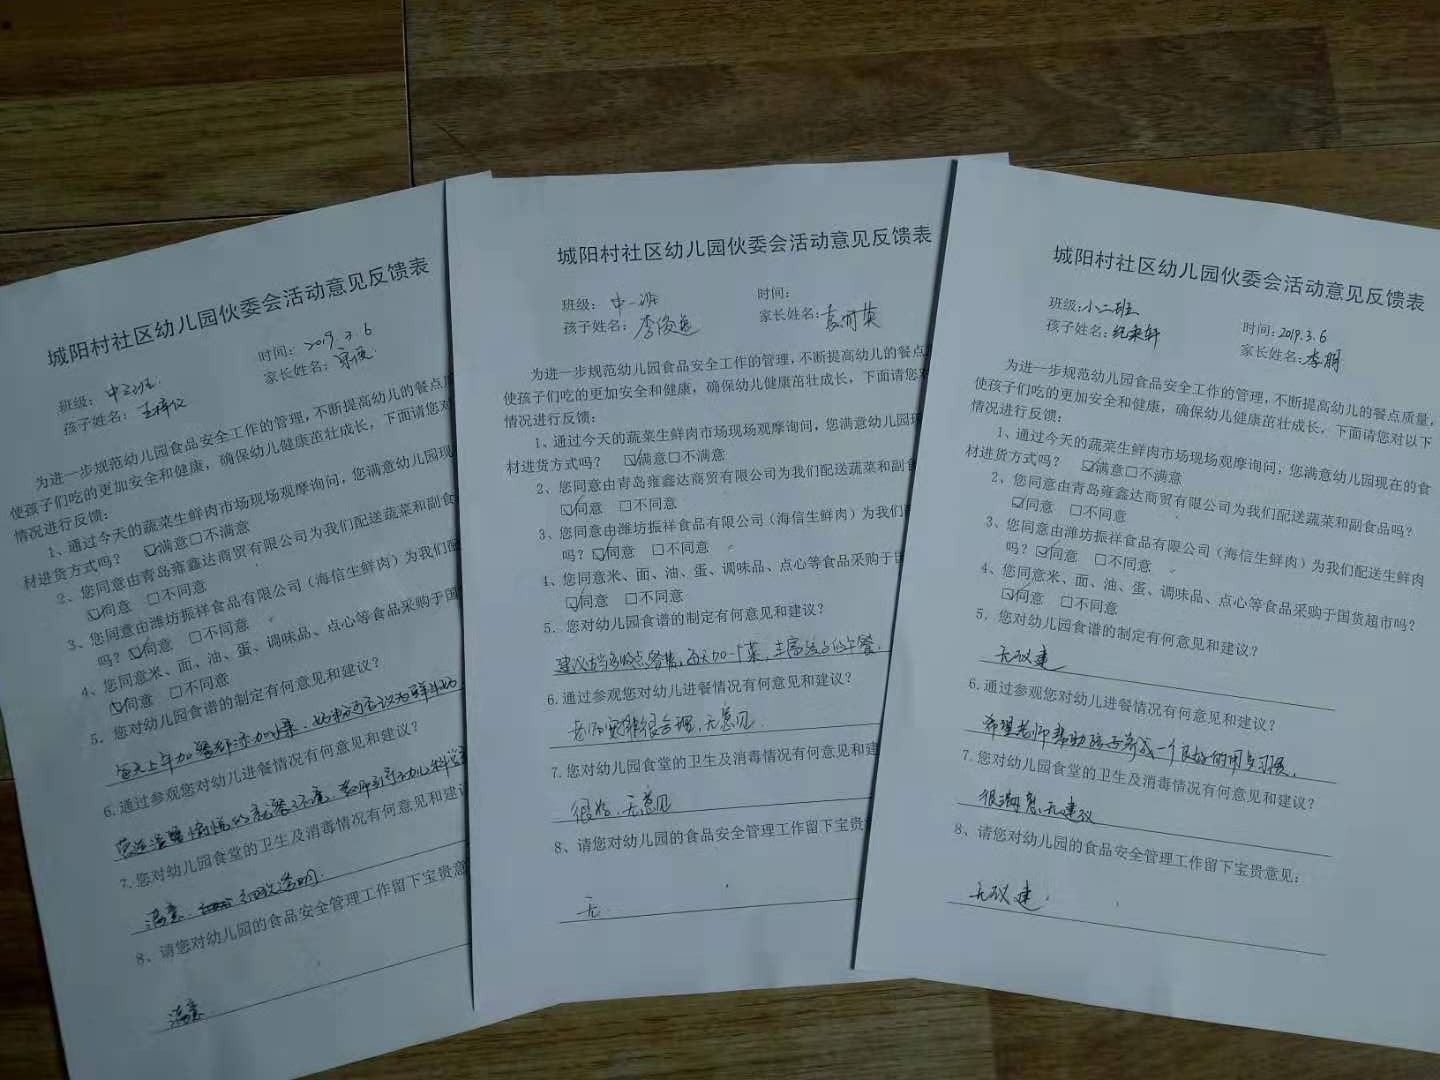 城阳村社区幼儿园伙委会活动意见反馈表
班级：中三班
时间：2019.3.6
孩子姓名：王梓仪
家长姓名：
为进一步规范幼儿园食品安全工作的管理，不断提高幼儿的餐点质
使孩子们吃的更加安全和健康，确保幼儿健康茁壮成长，下面请您对
情况进行反馈：
1、通过今天的蔬菜生鲜肉市场现场观摩询问，您满意幼儿园现
材进货方式吗？ ☑满意□不满意
2、您同意由青岛雍鑫达商贸有限公司为我们配送蔬菜和副食
☑同意 □不同意
3、您同意由潍坊振祥食品有限公司（海信生鲜肉）为我们配
吗？☑同意 □不同意
4、您同意米、面、油、蛋、调味品、点心等食品采购于国
☑同意 □不同意
5．您对幼儿园食谱的制定有何意见和建议？
每天上午加餐
6.通过参观您对幼儿进餐情况有何意见和建议？
营造温馨愉悦的就餐环境，
7.您对幼儿园食堂的卫生及消毒情况有何意见和建议
满意．
8、请您对幼儿园的食品安全管理工作留下宝贵意
满意
城阳村社区幼儿园伙委会活动意见反馈表
班级：中一班
时间：
孩子姓名：李俊逸
家长姓名：袁时英
为进一步规范幼儿园食品安全工作的管理，不断提高幼儿的餐点
使孩子们吃的更加安全和健康，确保幼儿健康茁壮成长，下面请您
情况进行反馈：
1、通过今天的蔬菜生鲜肉市场现场观摩询问，您满意幼儿园现
材进货方式吗？ ☑满意□不满意
2、您同意由青岛雍鑫达商贸有限公司为我们配送蔬菜和副食
☑同意 □不同意
3、您同意由潍坊振祥食品有限公司（海信生鲜肉）为我们
吗？☑同意 □不同意
4、您同意米、面、油、蛋、调味品、点心等食品采购于国
☑同意 □不同意
5．您对幼儿园食谱的制定有何意见和建议？
每天加一个菜，丰富孩子的午餐．
6.通过参观您对幼儿进餐情况有何意见和建议？
老师安排很合理，无意见．
7.您对幼儿园食堂的卫生及消毒情况有何意见和建
很好，无意见
8、请您对幼儿园的食品安全管理工作留下宝贵
无．
城阳村社区幼儿园伙委会活动意见反馈表
班级：小二班
时间：2019.3.6
孩子姓名：纪来轩
家长姓名：李朋
为进一步规范幼儿园食品安全工作的管理，不断提高幼儿的餐点质量，
使孩子们吃的更加安全和健康，确保幼儿健康茁壮成长，下面请您对以下
情况进行反馈：
1、通过今天的蔬菜生鲜肉市场现场观摩询问，您满意幼儿园现在的食
材进货方式吗？ ☑满意□不满意
2、您同意由青岛雍鑫达商贸有限公司为我们配送蔬菜和副食品吗？
☑同意 □不同意
3、您同意由潍坊振祥食品有限公司（海信生鲜肉）为我们配送生鲜肉
吗？☑同意 □不同意
4、您同意米、面、油、蛋、调味品、点心等食品采购于国货超市吗？
☑同意 □不同意
5．您对幼儿园食谱的制定有何意见和建议？
无议建
6.通过参观您对幼儿进餐情况有何意见和建议？
希望老师帮助孩子养成一个良好的用点习惯．
7.您对幼儿园食堂的卫生及消毒情况有何意见和建议？
很满意，无建议
8、请您对幼儿园的食品安全管理工作留下宝贵意见：
无议建．